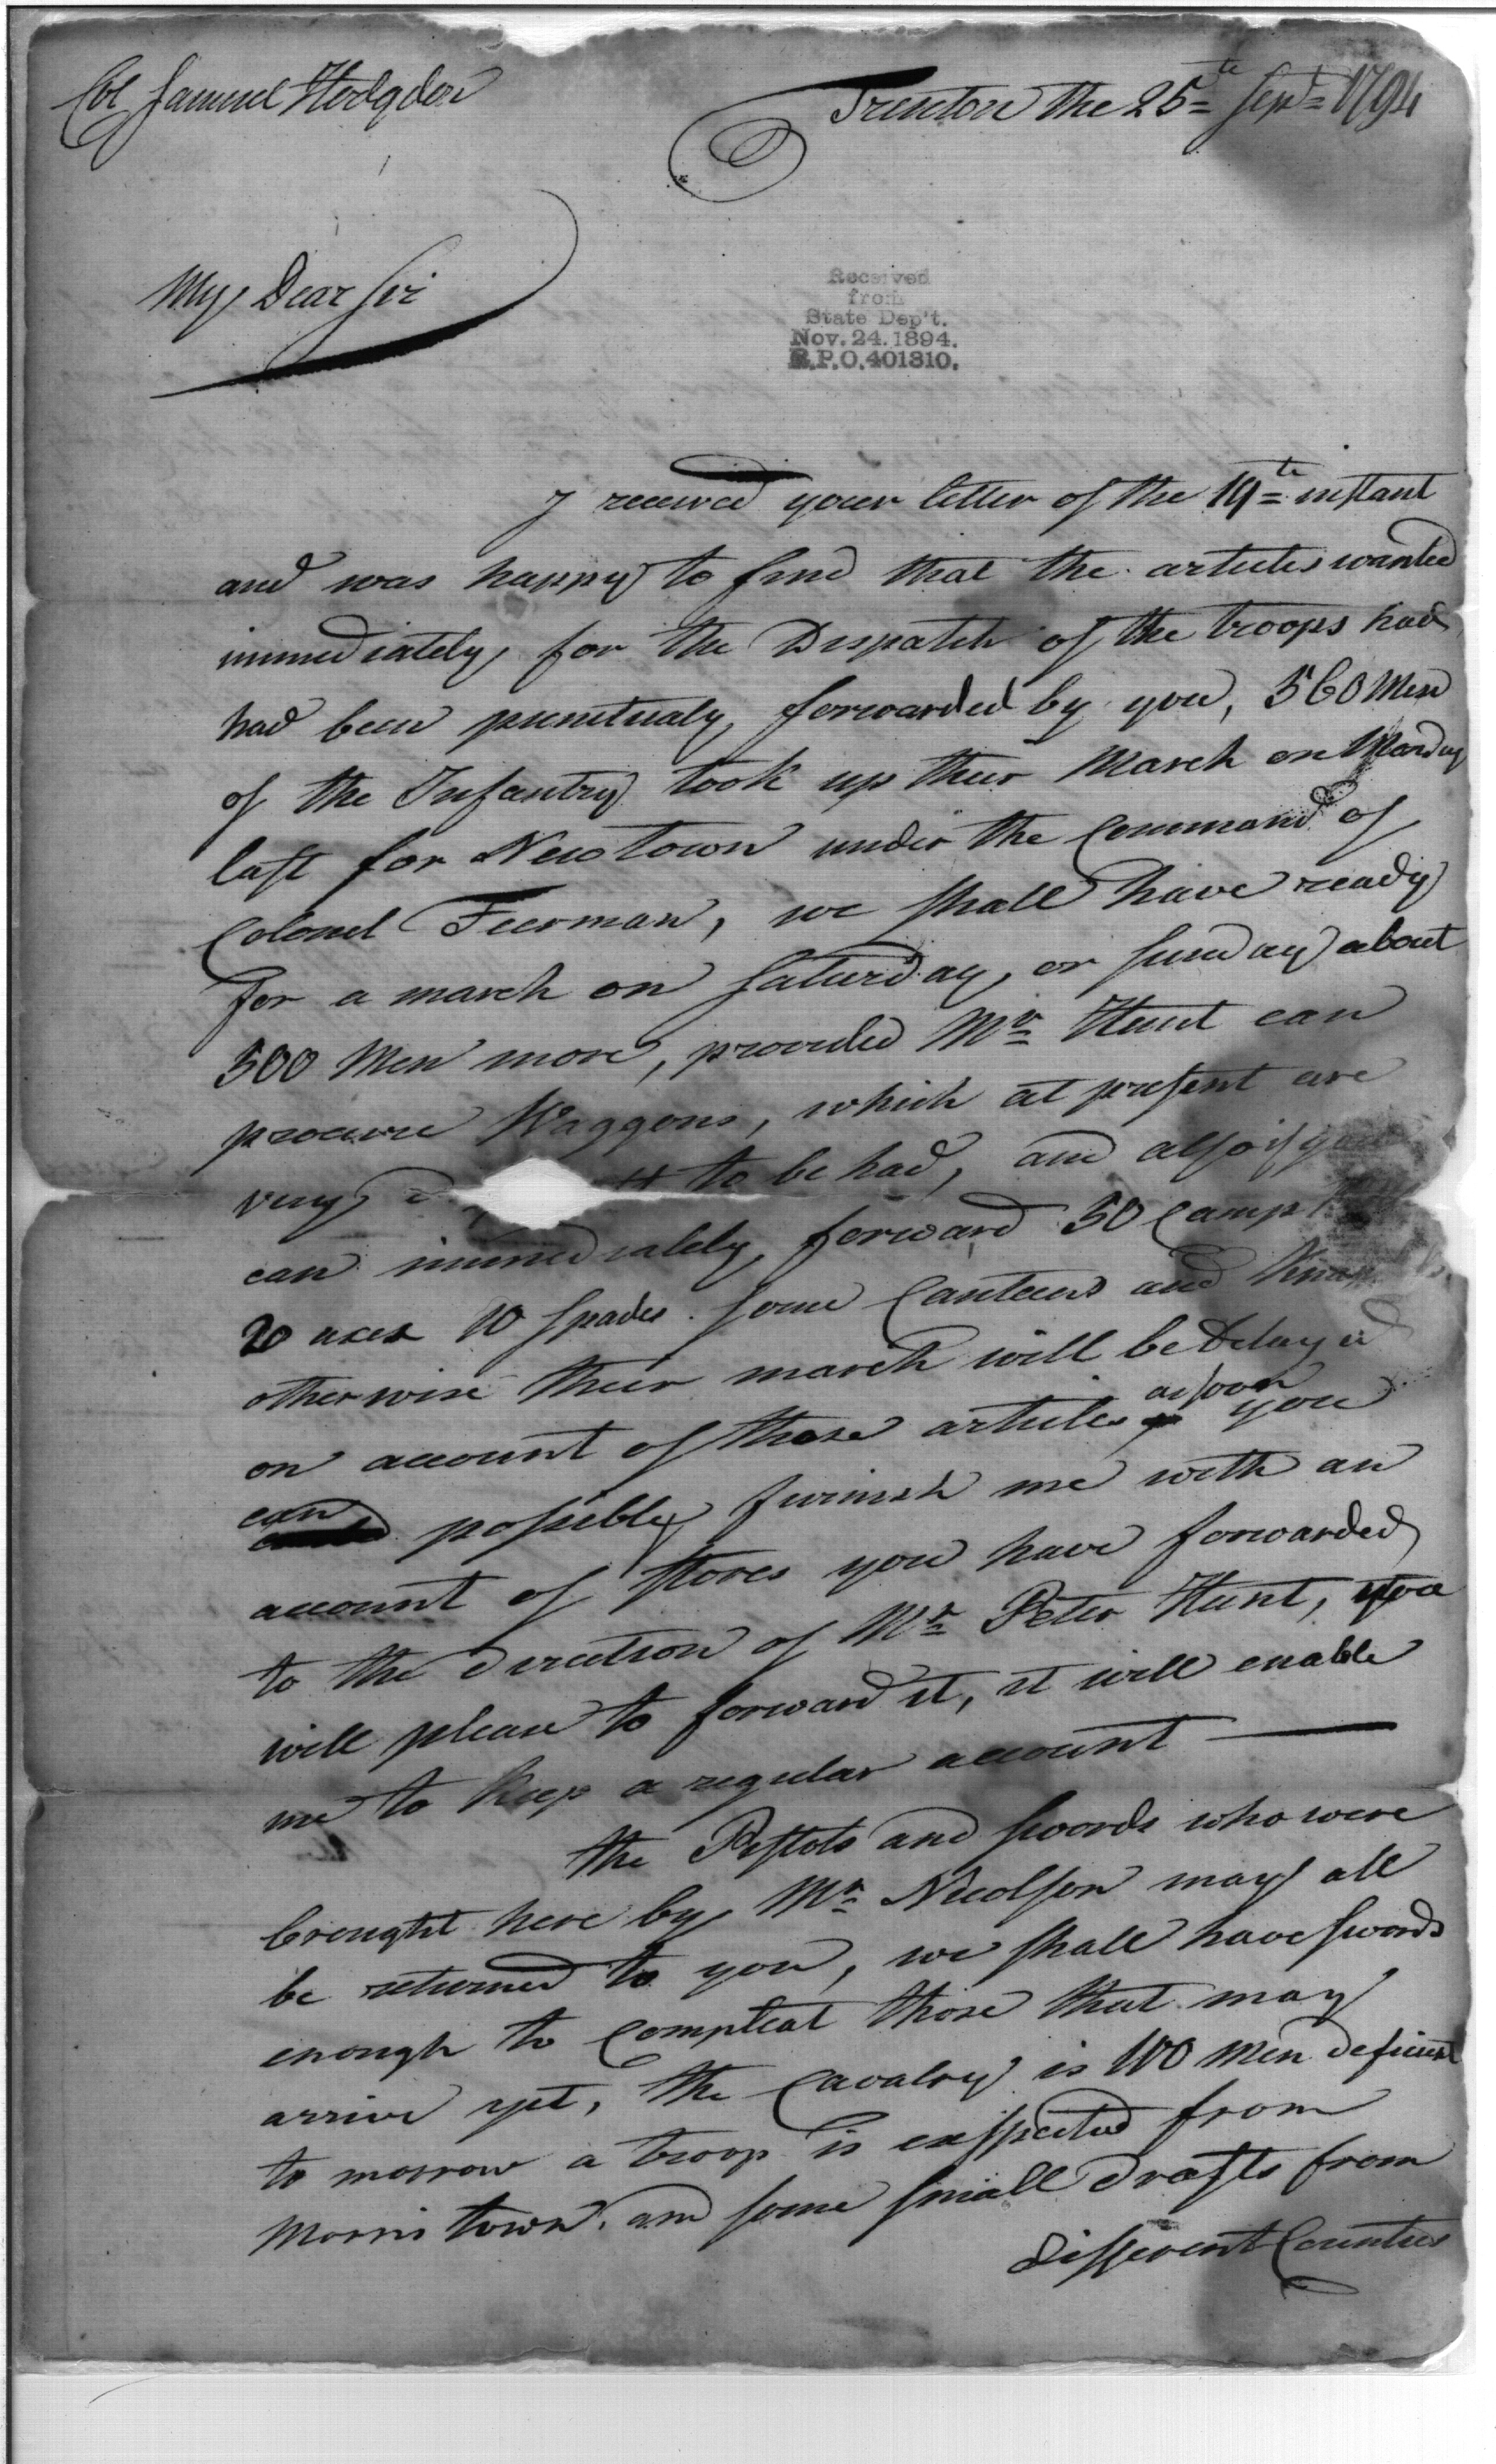 Col Samuel Hodgdon
Trenton the 25te Sept 1794
My Dear Sir
Received
from
State Dep't.
Nov. 24. 1894.
R.P.O. 401310.
I received your letter of the 19te instant
and was happy to find that the articles wanted
immediately for the Dispatch of the troops had
had been punctualy forwarded by you, 560 Men
of the Infantry took up their March on Monday
last for New town under the Command of
Colonel Feerman, we shall have ready
for a march on Saturday, or Sunday about
500 Men more, provided Mr Hunt can
procure Waggons, which at present are
very to be had, and also if you
can immediately forward 50 Camp
20 axes 10 Spades some Canteens and
otherwise their march will be Delayed
on account of those articles as soon you
can possibly furnish me with an
account of Stores you have forwarded
to the direction of Mr Peter Hunt, you
will please to forward it, it will enable
me to keep a regular account
the Pistols and swords who were
brought here by Mr Nicolson may all
be returned to you, we shall have swords
enough to Compleat those that may
arrive yet, the Cavalry is 100 Men deficient
to morrow a troop is exspected from
Morris town, and some small drafts from
different Counties